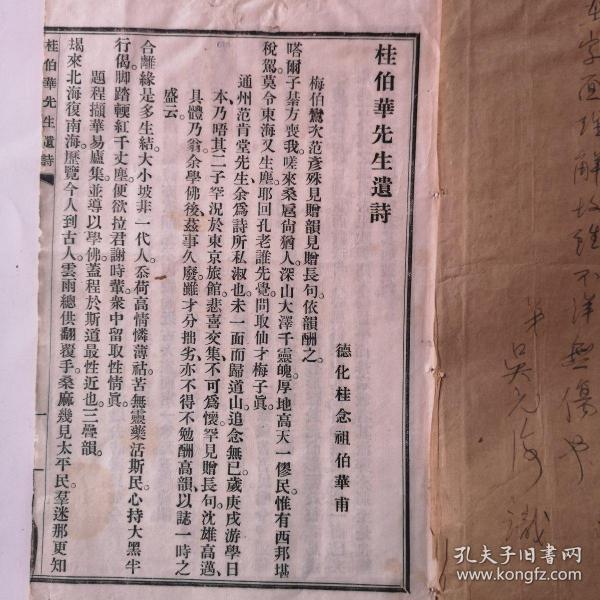 桂伯華先生遺詩
德化桂念祖伯華甫
梅伯鸞次范彥殊見贈韻見贈長句。依韻酬之。
嗒爾子綦方喪我。嗟來桑扈尙猶人。深山大澤千靈魄。厚地高天一僇民。惟有西邦堪
稅駕。莫令東海又生塵。耶回孔老誰先覺。問取仙才梅子眞。
通州范肯堂先生。余爲詩所私淑也。未一面而歸道山。追念無已。歲庚戌游學日
本。乃晤其二子罕況於東京旅館。悲喜交集。不可爲懷。罕見贈長句。沈雄高邁、
具體乃翁。余學佛後、茲事久廢。雖才分拙劣。亦不得不勉酬高韻。以誌一時之
盛云。
合離緣是多生結。大小坡非一代人。忝荷高情憐薄祜。苦無靈藥活斯民。心持大黑半
行偈。脚踏輭紅千丈塵。便欲拉君謝時輩。衆中留取性情眞。
題程擷華易廬集。並導以學佛。蓋程於斯道最性近也。三疊韻。
朅來北海復南海。歷覽今人到古人。雲雨總供翻覆手。桑麻幾見太平民。羣迷那更知
桂伯華先生遺詩
字面
解
故雖不詳無傷也
吳
識
孔夫子旧书网
www.kongfz.com